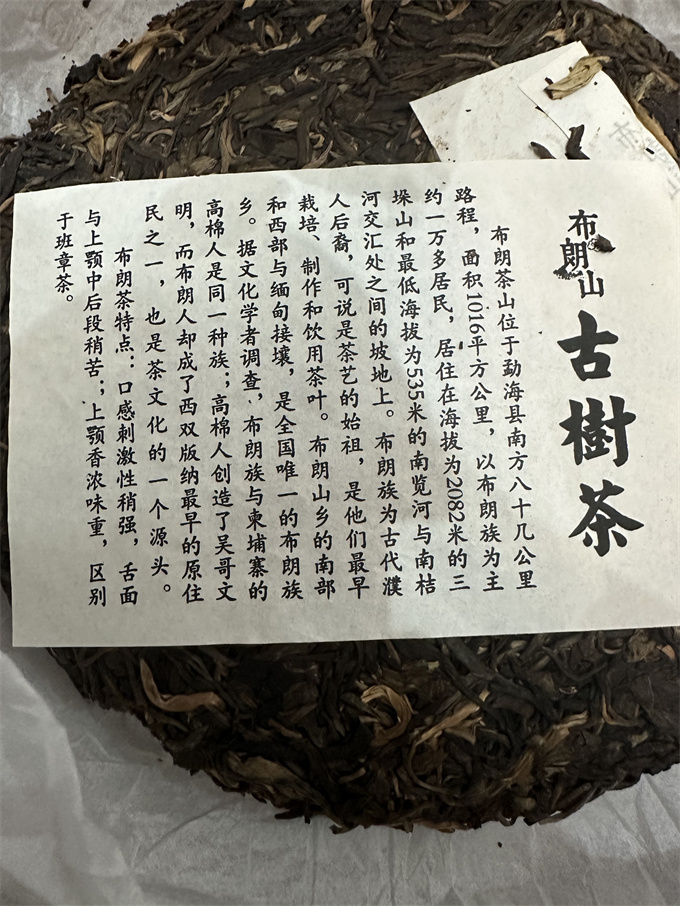 布朗山古樹茶
布朗茶山位于勐海县南方八十几公里
路程，面积1016平方公里，以布朗族为主
约一万多居民，居住在海拔为2082米的三
垛山和最低海拔为535米的南览河与南桔
河交汇处之间的坡地上。布朗族为古代濮
人后裔，可说是茶艺的始祖，是他们最早
栽培、制作和饮用茶叶。布朗山乡的南部
和西部与缅甸接壤，是全国唯一的布朗族
乡。据文化学者调查，布朗族与柬埔寨的
高棉人是同一种族；高棉人创造了吴哥文
明，而布朗人却成了西双版纳最早的原住
民之一，也是茶文化的一个源头。
布朗茶特点：口感刺激性稍强，舌面
与上颚中后段稍苦；上颚香浓味重，区别
于班章茶。